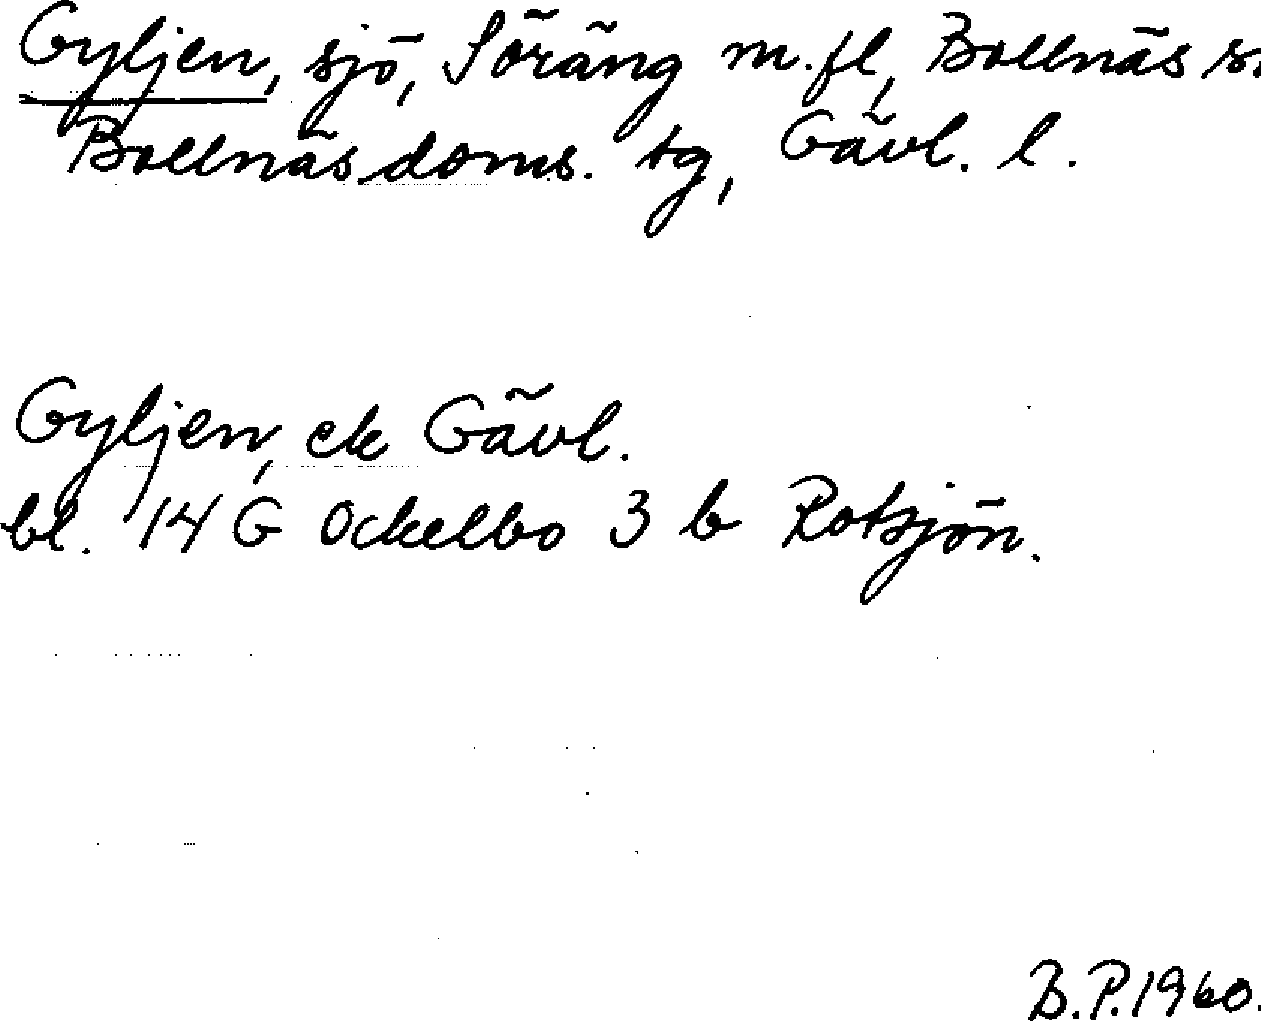 Gyljen, sjö, Söräng m.fl, Bollnäs s.
Bollnäs doms. tg, Gävl. l.
Gyljen, ek Gävl.
bl. 14 G Ockelbo 3 b Rotsjön.
B.P. 1960.